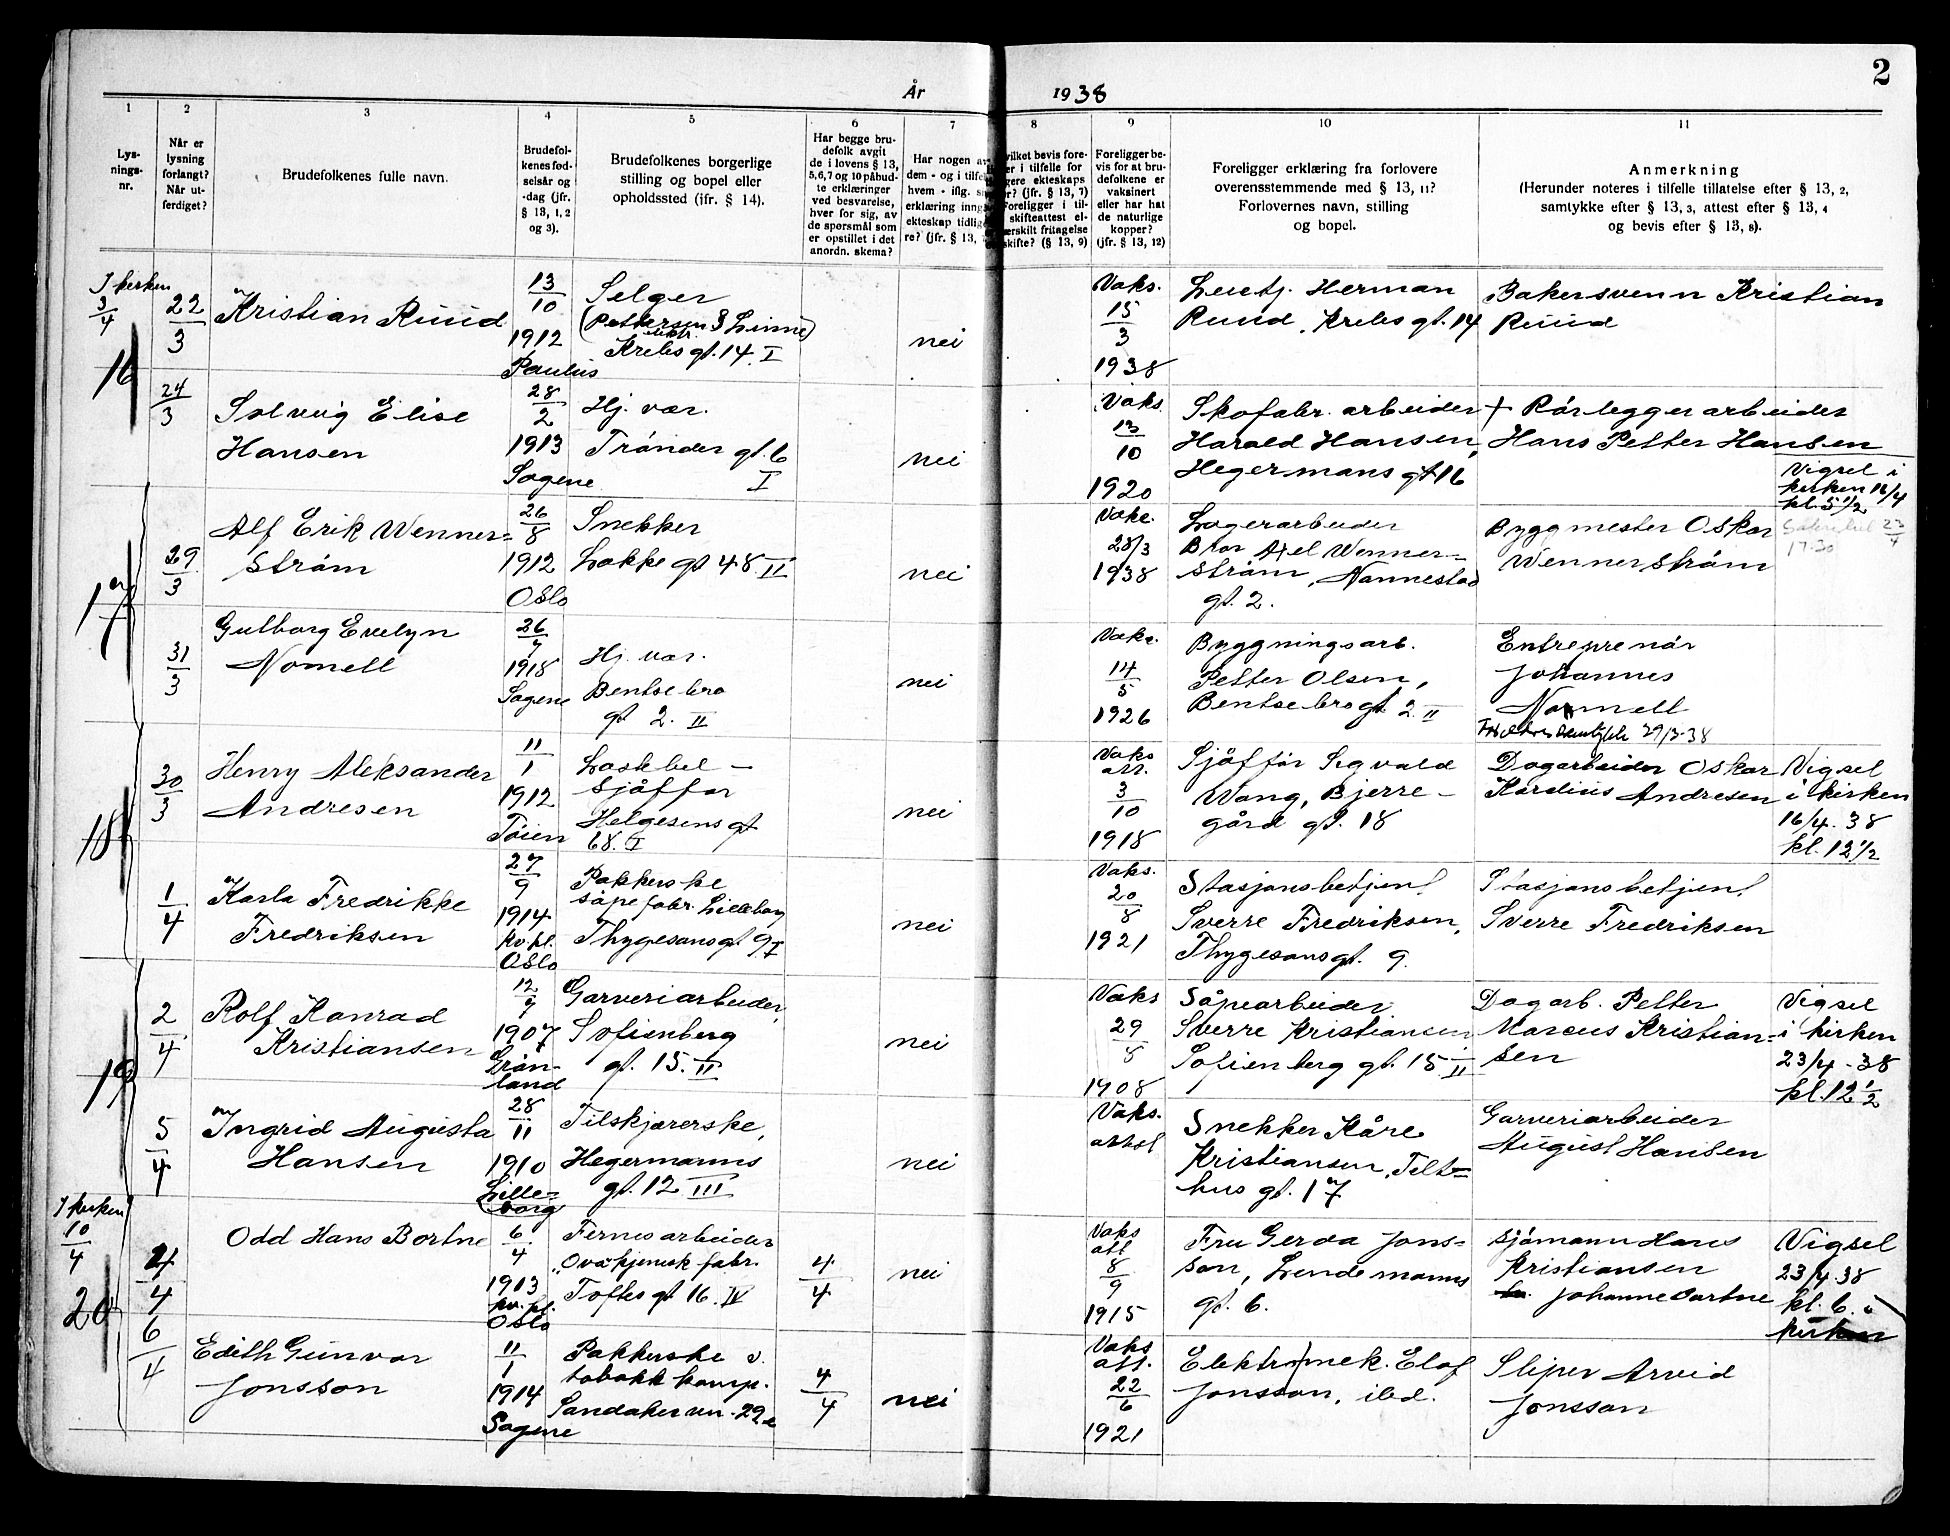 2
År 1938
1 2 3 4 5 6 7 8 9 10 11
Lys-
nings-
nr.
Når er
lysning
forlangt?
Når ut-
ferdiget?
Brudefolkenes fulle navn.
Brudefol-
kenes fød-
selsår og
-dag (jfr.
§ 13, 1, 2
og 3).
Brudefolkenes borgerlige
stilling og bopel eller
opholdssted (jfr. § 14).
Har begge bru-
defolk avgit
de i lovens § 13,
5,6,7 og 10 påbud-
te erklæringer
ved besvarelse,
hver for sig, av
de spørsmål som
er opstillet i det
anordn. skema?
Har nogen av
dem - og i tilfe
hvem - iflg. s
erklæring inng
ekteskap tidlig
re? (jfr. § 13,
vilket bevis fore-
er i tilfelle for
gere ekteskaps
r? (jfr. § 13, 7)
Foreligger i til-
skifteattest el-
erskilt fritagelse
skifte? (§ 13, 9)
Foreligger be-
vis for at bru-
defolkene er
vaksinert
eller har hat
de naturlige
kopper?
(jfr. § 13, 12)
Foreligger erklæring fra forlovere
overensstemmende med § 13, 11?
Forlovernes navn, stilling
og bopel.
Anmerkning
(Herunder noteres i tilfelle tillatelse efter § 13, 2,
samtykke efter § 13, 3, attest efter § 13, 4
og bevis efter § 13, 8).
I kirken
3/4
16
22/3
Kristian Ruud
13/10
1912
Paulus
Selger
(Pettersen & Linne)
Krebs gt. 14 I
nei
Vaks.
15/3
1938
Herman
Ruud, Krebs gt. 14
Bakersvenn Kristian
Ruud
24/3
Solveig Elise
Hansen
28/2
1913
Sagene
Hj. vær.
Trønder gt. 6
I
nei
Vaks.
13/10
1920
Skofabr. arbeider
Harald Hansen,
Hegermans gt 16
+ Rørleggerarbeider
Hans Petter Hansen
Vigsel i
kirken 16/4
kl. 5 1/2
17
29/3
Alf Erik Wenner=
strøm
26/8
1912
Oslo
Snekker
Løkke gt 48 II
nei
Vaks.
28/3
1938
Lagerarbeider
Axel Wenner=
strøm, Nannestad
gt. 2.
Byggmester Oskar
Wennerstrøm
17.30
31/3
Gulborg Evelyn
Nomell
26/7
1918
Sagene
Hj. vær.
Bentsebro
gt 2. II
nei
Vaks.
14/5
1926
Byggningsarb.
Petter Olsen,
Bentsebro gt. 2 II
Entreprenør
Johannes
Nomell
29/3-38
18
30/3
Henry Aleksander
Andresen
11/1
1912
Tøien
Lastebil-
sjåffør
Helgesens gt
68. I
nei
Vaks
att.
3/10
1918
Sjåffør Sigvald
Wang, Bjerre-
gård gt. 18
Dagarbeider Oskar
Kardius Andresen
Vigsel
i kirken
16/4. 38
kl. 12 1/2
1/4
Karla Fredrikke
Fredriksen
27/9
1914
kv.kl.
Oslo
Pakkerske
såpefabr. Lilleborg
Thygesons gt 9 I
nei
Vaks.
20/8
1921
Stasjonsbetjent
Sverre Fredriksen,
Thygesons gt. 9.
Stasjonsbetjent
Sverre Fredriksen
19
2/4
Rolf Konrad
Kristiansen
12/7
1907
Grøn-
land
Garveriarbeider,
Sofienberg
gt. 15. II
nei
Vaks
29/8
1908
Såpearbeider
Sverre Kristiansen
Sofienberg gt. 15 II
Dagarb. Petter
Marcus Kristian=
sen
Vigsel
i kirken
23/4-38
kl. 12 1/2
5/4
Ingrid Augusta
Hansen
28/11
1910
Lille=
borg
Tilskjærerske,
Hegermanns
gt. 12 III
nei
Vaks.
attest
Snekker Kåre
Kristiansen, Telt=
hus gt. 17
Garveriarbeider
August Hansen
I kirken
10/4
20
4/4
Odd Hans Bortne
6/4
1913
kv.kl.
Oslo
Fernesarbeider
kjemisk fabr.
Toftes gt 16. IV
4/4
nei
Vaks
att
8/9
1915
Fru Gerda Jons=
son, Lendemanns
gt. 6.
Sjømann Hans
Kristiansen
Johanne Bortne
Vigsel
23/4 38
kl. 6. i
kirken
6/4
Edith Gunvor
Jonsson
11/1
1914
Sagene
Pakkerske v.
tobakk komp.
Sandakervn. 22
4/4
nei
Vaks
att.
22/6
1921
Elektr. mek. Elof
Jonsson, ibd.
Sliper Arvid
Jonsson